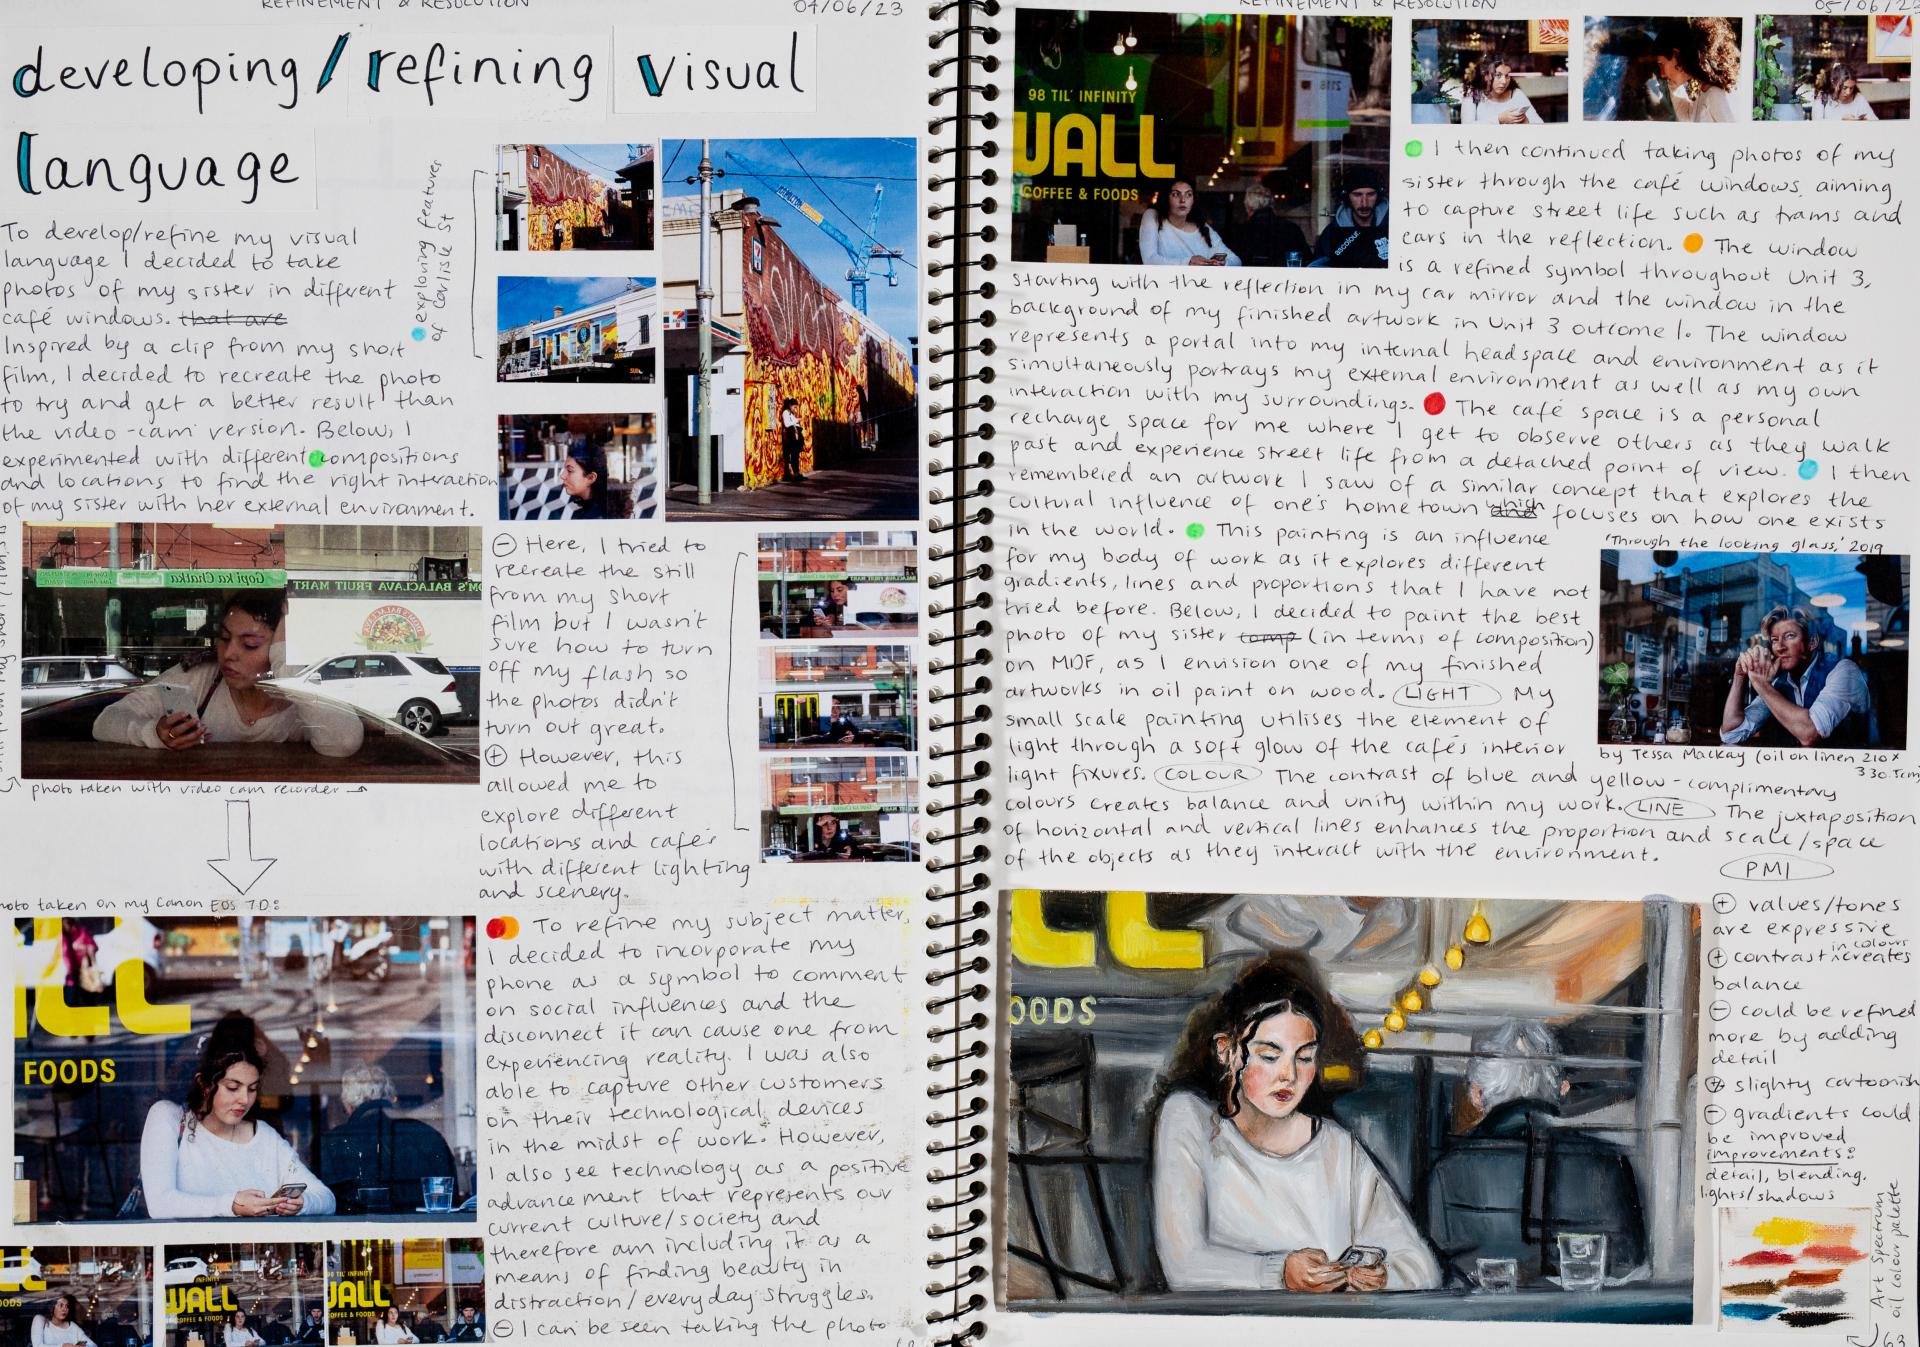 REFINEMENT & RESOLUTION
04/06/23
developing/refining visual
language
To develop/refine my visual
language I decided to take
photos of my sister in different
café windows. that are
Inspired by a clip from my short
film, I decided to recreate the photo
to try and get a better result than
the video-cam version. Below, I
experimented with different compositions
and locations to find the right interaction
of my sister with her external environment.
exploring features
of Carlisle St
photo taken with video cam recorder
photo taken on my Canon EOS 7D:
FOODS
⊖ Here, I tried to
recreate the still
from my short
film but I wasn't
sure how to turn
off my flash so
the photos didn't
turn out great.
⊕ However, this
allowed me to
explore different
locations and cafés
with different lighting
and scenery.
To refine my subject matter,
I decided to incorporate my
phone as a symbol to comment
on social influences and the
disconnect it can cause one from
experiencing reality. I was also
able to capture other customers
on their technological devices
in the midst of work. However,
I also see technology as a positive
advancement that represents our
current culture/society and
therefore am including it as a
means of finding beauty in
distraction/everyday struggles.
⊖ I can be seen taking the photo
INFINITY
WALL
COFFEE & FOODS
98 TIL' INFINITY
WALL
COFFEE & FOODS
REFINEMENT & RESOLUTION
05/06/23
98 TIL' INFINITY
WALL
COFFEE & FOODS
I then continued taking photos of my
sister through the café windows, aiming
to capture street life such as trams and
cars in the reflection. The window
is a refined symbol throughout Unit 3,
starting with the reflection in my car mirror and the window in the
background of my finished artwork in Unit 3 outcome 1. The window
represents a portal into my internal headspace and environment as it
simultaneously portrays my external environment as well as my own
interaction with my surroundings. The café space is a personal
recharge space for me where I get to observe others as they walk
past and experience street life from a detached point of view. I then
remembered an artwork I saw of a similar concept that explores the
cultural influence of one's hometown and which focuses on how one exists
in the world. This painting is an influence
for my body of work as it explores different
gradients, lines and proportions that I have not
tried before. Below, I decided to paint the best
photo of my sister comp (in terms of composition)
on MDF, as I envision one of my finished
artworks in oil paint on wood. LIGHT My
small scale painting utilises the element of
light through a soft glow of the cafés interior
light fixures. COLOUR The contrast of blue and yellow - complimentary
colours creates balance and unity within my work. LINE The juxtaposition
of horizontal and vertical lines enhances the proportion and scale/space
of the objects as they interact with the environment.
'Through the looking glass,' 2019
by Tessa Mackay (oil on linen 210x
330.5cm)
PMI
⊕ values/tones
are expressive
⊕ contrast in colours creates
balance
⊖ could be refined
more by adding
detail
slighty cartoonish
⊖ gradients could
be improved
improvements:
detail, blending,
lights/shadows
OODS
Art Spectrum
oil colour palette
63